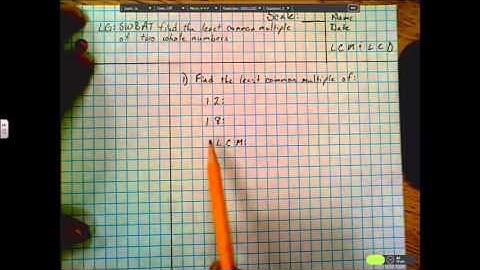 LG: SWBAT find the least common multiple
of two whole numbers
Scale:
Name
Date
LCM + LCD
1) Find the least common multiple of:
12:
18:
LCM: